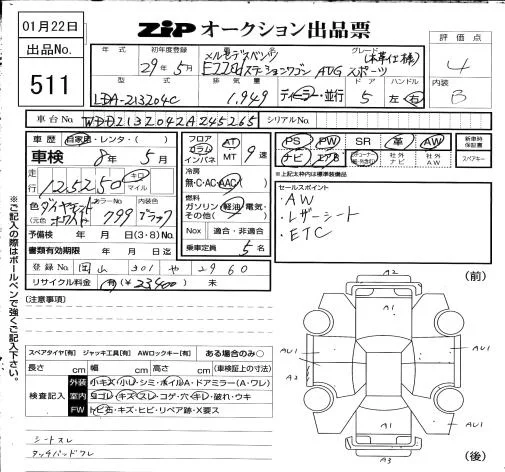 01月22日
出品No.
511
ZIP オークション出品票
評価点
4
内装
B
年式 初年度登録 グレード
29年5月 メルセデスベンツ (本革仕様)
E220d ステーションワゴン AVG スポーツ
型式 排気量 ドア ハンドル
LDA-213204C 1,949 ディーラー・並行 5 左・右
車台No. WDD2132042A245265 シリアルNo.
車歴 自家用・レンタ・( )
車検 8年 5月
走行 125250 キロ マイル
色 ダイヤモンドホワイト (元色 ) カラーNo. 799 内装色 ブラック
予備検 年 月 日(3・8)No.
書類有効期限 年 月 日迄
登録No. 岡山 301 や 2960
リサイクル料金 有(¥ 23400 ) 未
フロア コラム インパネ AT MT 9速
冷房 無・C・AC・AAC
燃料 ガソリン・軽油・電気・その他( )
Nox 適合・非適合
乗車定員 5名
PS PW SR 革 AW
ナビ エアB 社外ナビ 社外AW
新車時保証書
スペアキー
※上記太枠内は標準装備品
セールスポイント
・AW
・レザーシート
・ETC
※ご記入の際はボールペンで強くご記入下さい。
[注意事項]
スペアタイヤ[有] ジャッキ工具[有] AWロックキー[有] ある場合のみ○
長さ cm 幅 cm 高さ cm (車検証上の寸法)
検査記入
外装 小キズ・小U・シミ・ホイルA・ドアミラー(A・ワレ)
室内 ヨゴレ・キズ・スレ・コゲ・穴・キレ・破れ・ウキ
FW トビ石・キズ・ヒビ・リペア跡・X要ス
シートスレ
タッチパッドワレ
(前)
A2
A1
AU1
AU1
A2
AU1
A1
A3
(後)